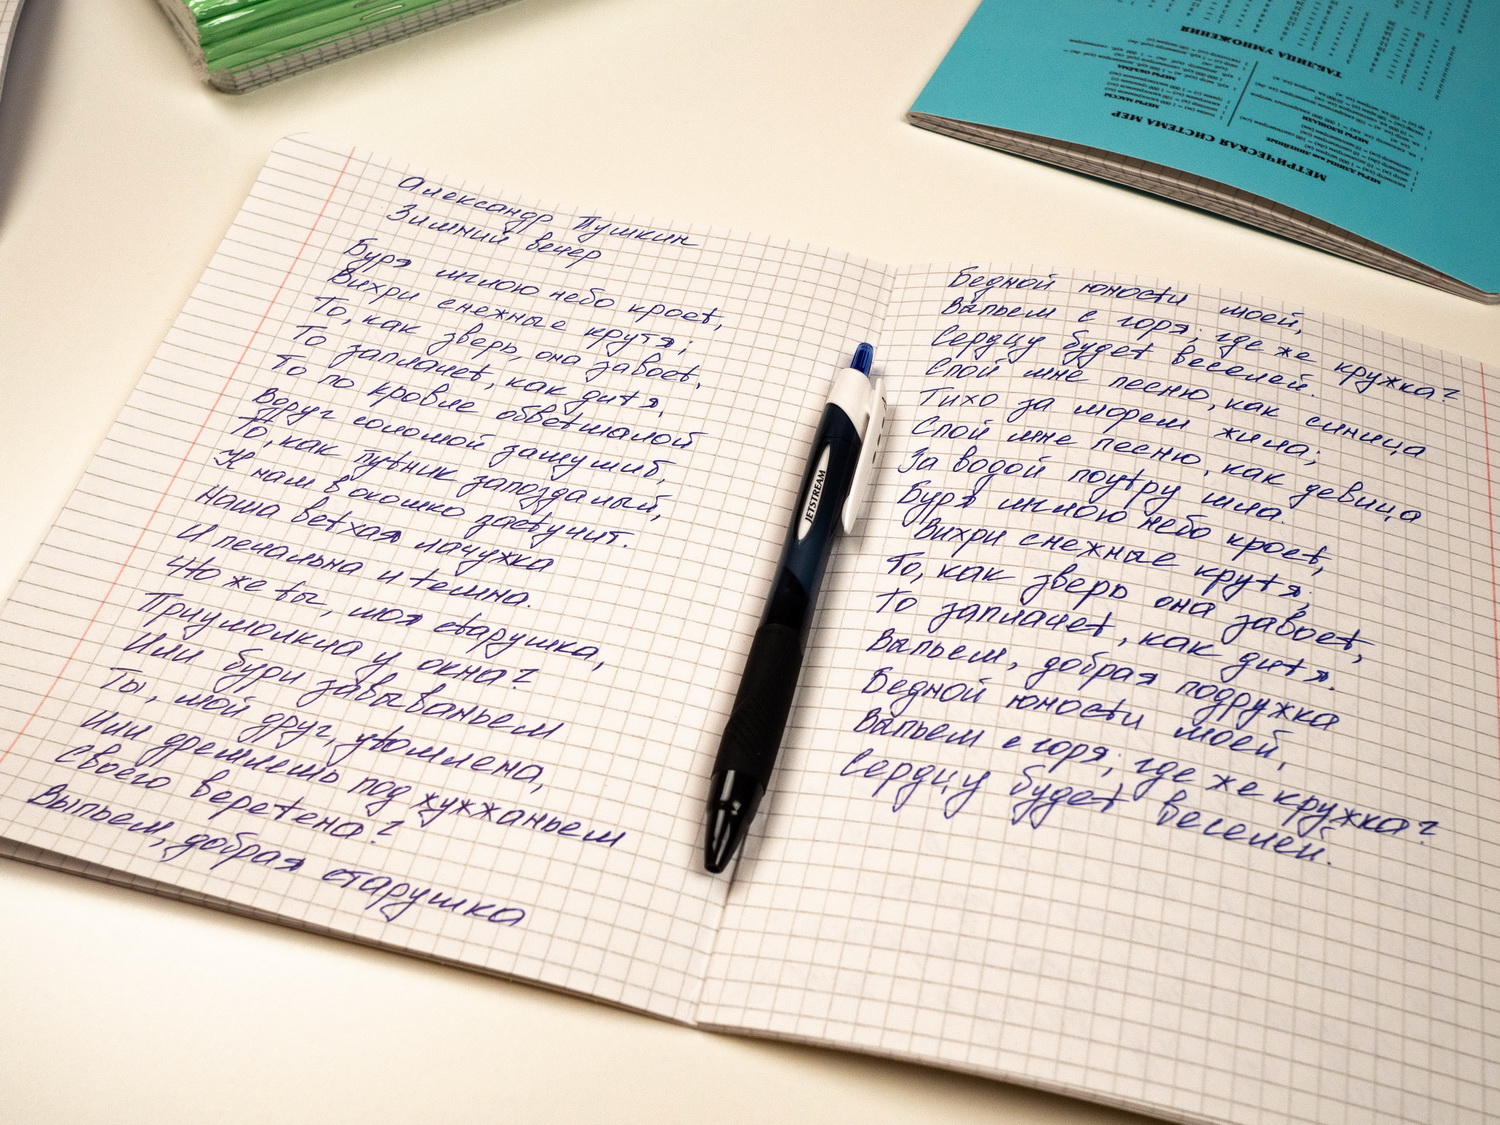 Александр Пушкин
Зимний вечер
Буря мглою небо кроет,
Вихри снежные крутя;
То, как зверь, она завоет,
То заплачет, как дитя,
То по кровле обветшалой
Вдруг соломой зашумит,
То, как путник запоздалый,
К нам в окошко застучит.
Наша ветхая лачужка
И печальна и темна.
Что же ты, моя старушка,
Приумолкла у окна?
Или бури завываньем
Ты, мой друг, утомлена,
Или дремлешь под жужжаньем
Своего веретена?
Выпьем, добрая старушка
Бедной юности моей,
Выпьем с горя; где же кружка?
Сердцу будет веселей.
Спой мне песню, как синица
Тихо за морем жила;
Спой мне песню, как девица
За водой поутру шла.
Буря мглою небо кроет,
Вихри снежные крутя;
То, как зверь она завоет,
То заплачет, как дитя.
Выпьем, добрая подружка
Бедной юности моей,
Выпьем с горя; где же кружка?
Сердцу будет веселей.
JETSTREAM
МЕТРИЧЕСКАЯ СИСТЕМА МЕР
МЕРЫ ДЛИНЫ или ЛИНЕЙНЫЕ
МЕРЫ ПЛОЩАДИ
МЕРЫ МАССЫ
МЕРЫ ОБЪЕМА
ТАБЛИЦА УМНОЖЕНИЯ